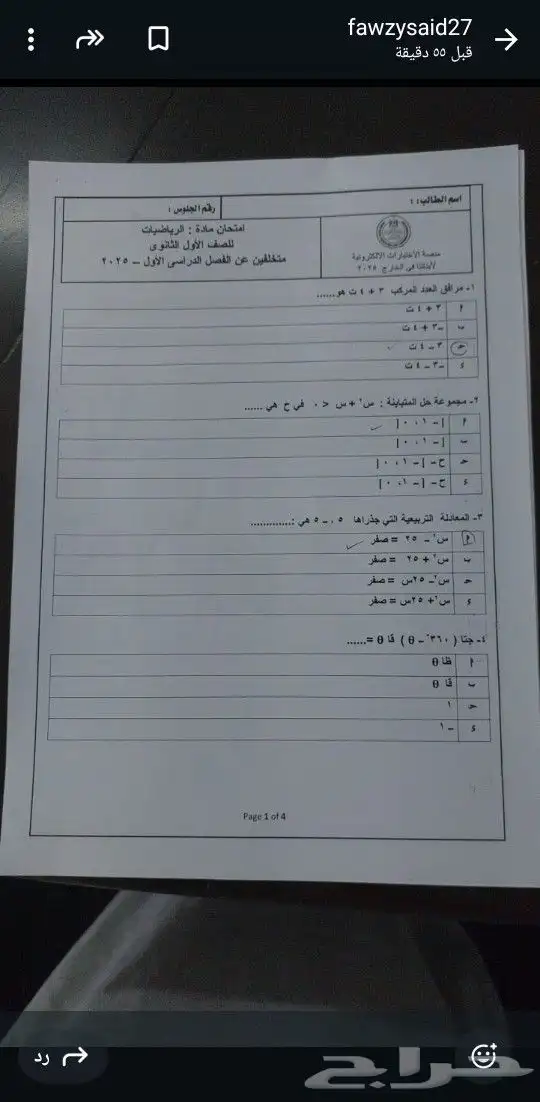 fawzysaid27
قبل ٥٥ دقيقة
اسم الطالب :
رقم الجلوس :
منصة الاختبارات الالكترونية
لأبنائنا في الخارج ٢٠٢٥
امتحان مادة : الرياضيات
للصف الأول الثانوى
متخلفين عن الفصل الدراسى الأول – ٢٠٢٥
١- مرافق العدد المركب ٣ + ٤ ت هو......
أ ٣ + ٤ ت
ب -٣ + ٤ ت
حـ ٣ – ٤ ت
ء -٣ – ٤ ت
٢- مجموعة حل المتباينة : س٢ + س < ٠ في ح هي ......
أ
ب
حـ
ء
٣- المعادلة التربيعية التي جذراها ٥ ، – ٥ هي :.............
أ س٢ – ٢٥ = صفر
ب س٢ + ٢٥ = صفر
حـ س٢ – ٢٥س = صفر
ء س٢ + ٢٥س = صفر
٤- جتا ( ٣٦٠° – θ ) قا θ =......
أ ظا θ
ب قا θ
حـ ١
ء – ١
Page 1 of 4
رد
حراج